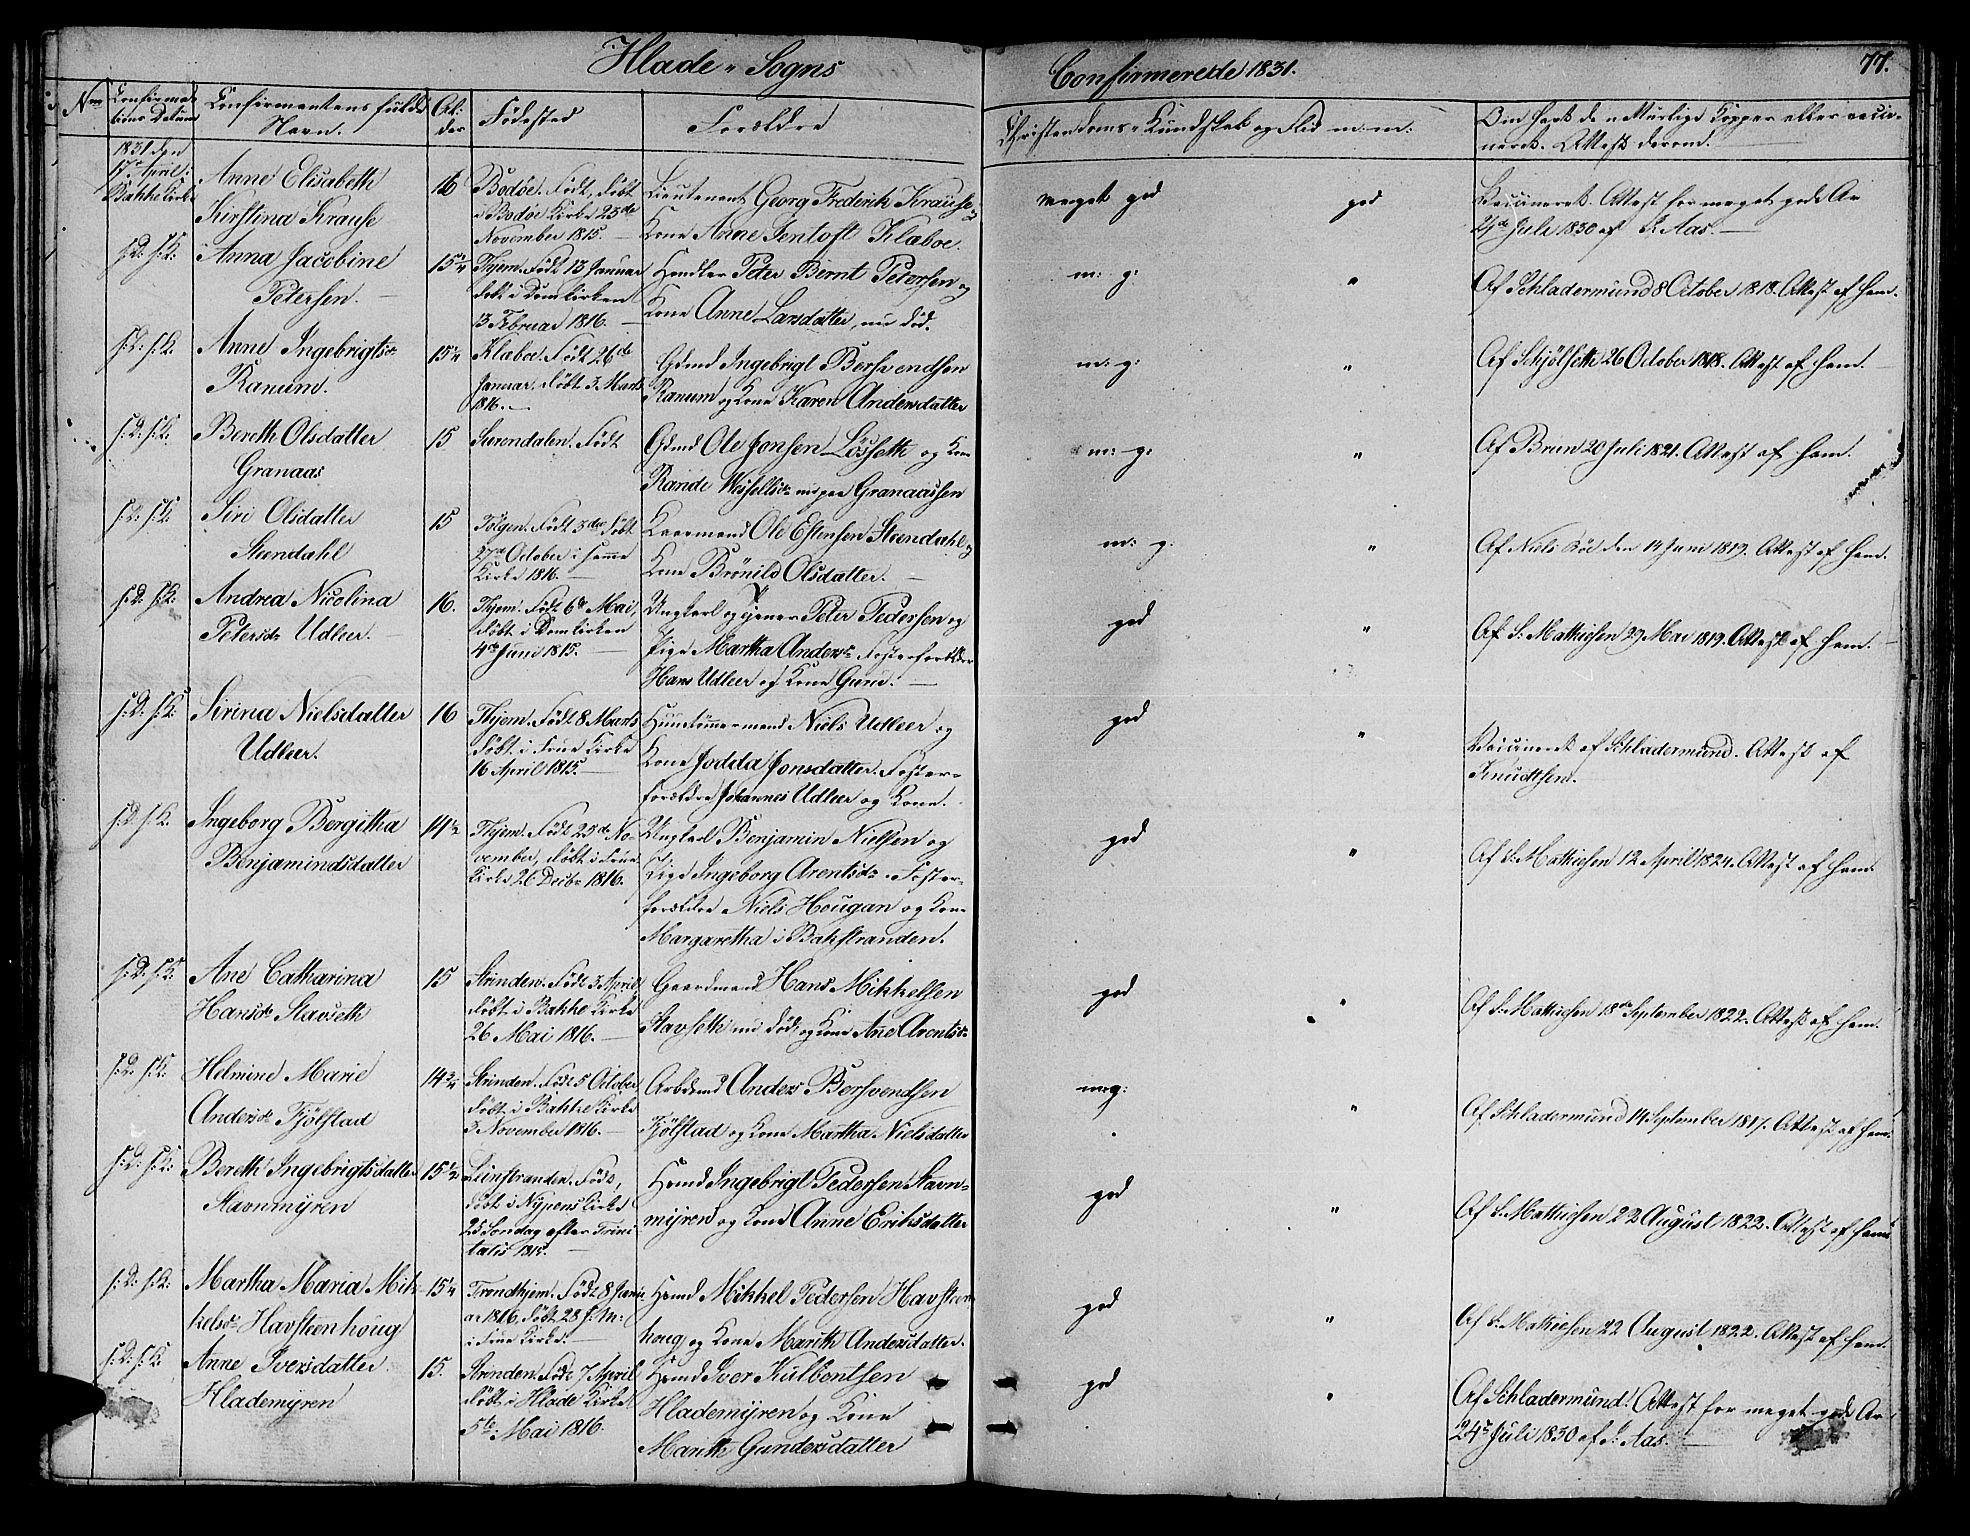 Hlade Sogns
Confirmerede 1831.
77.
No
Confirmations Datum
Confirmantens fulde Navn.
Alder
Fødested
Forældre
Christendoms-Kundskab og Flid m: m:
Om havt de naturlige Kopper eller vaccineret. Attest derom.
1831 den 17de April: Bakke Kirke
Anne Elisabeth
Kirstina Krause
16
Bodøe. Født, døbt
i Bodøe Kirke 23de
November 1815.
Lieutenant Georg Frederik Krause og
Kone Anne Jentoft Klæboe.
meget god
god
Vaccineret. Attest for meget gode Ar
24de Juli 1830 af S. Aas.
s: D: s: K:
Anna Jacobine
Petersen.
15 1/4
Thjem. Født 13 Januar
døbt i Domkirken
13 Februar 1816.
Handler Peter Bernt Petersen og
Kone Anne Larsdatter, nu død.
m: g:
"
Af Schladermund 8 October 1818. Attest af ham.
s: D: s: K:
Anne Ingebrigtsdr
Ranum.
15 1/4
Klæboe. Født 26de
Januar. døbt 3. Marts
1816.
Gdmd Ingebrigt Bersvendsen
Ranum og Kone Karen Andersdatter
m: g:
"
Af Schjølseth 26 October 1818. Attest af ham.
s: D: s: K:
Bereth Olsdatter
Granaas
15
Surendalen. Født
Gdmd Ole Jonsen Løsseth og Kone
Rande Wesseltsdr nu paa Granaassen
m: g:
"
Af Brun 20 Juli 1821. Attest af ham.
s: D: s: K:
Siri Olsdatter
Steendahl
15
Tolgen. Født 3de døbt
27de October i samme
Kirke 1816.
Leermand Ole Estensen Steendahl og
Kone Brønild Olsdatter.
m: g:
"
Af Niels Røe den 14 Juni 1819. Attest af ham.
s: D: s: K:
Andrea Nicolina
Petersdr Udleer.
16.
Thjem. Født 6de Mai,
døbt i Domkirken
4de Juni 1815.
Ungkarl og tjener Peter Pedersen og
Pige Martha Andersdr Fosterforældre
Hans Udleer og Kone Guru.
god
"
Af S: Mathiesen 29 Mai 1819. Attest af ham.
s: D: s: K:
Sirina Nielsdatter
Udleer.
16
Thjem. Født 8 Marts
døbt i Frue Kirke
16 April 1815.
Huustømmermand Niels Udleer og
Kone Jodda Jonsdatter. Foster-
forældre Johannes Udleer og Kone.
god
"
Vaccineret af Schladermund. Attest af
Knudtsen.
s: D: s: K:
Ingeborg Bergitha
Benjamindsdatter
14 1/2
Thjem. Født 25de No-
vember, døbt i Frue
Kirke 26 Decbr 1816.
Ungkarl Benjamin Nielsen og
Pige Ingeborg Arentsdr. Foster-
forældre Niels Hougan og Kone
Margaretha i Bakstranden.
god
"
Af S: Mathiesen 12 April 1824. Attest af ham.
s: D: s: K:
Ane Catharina
Hansdr Stavseth
15
Strinden. Født 3 April,
døbt i Bakke Kirke
26 Mai 1816.
Gaardmand Hans Mikkelsen
Stavseth nu død, og Kone Ane Arentsdr
god
"
Af S: Mathiesen 18de September 1822. Attest af ham.
s: D: s: K:
Helmine Marie
Andersdr Fjølstad
14 3/4
Strinden. Født 5 October,
døbt i Bakke Kirke
3 November 1816.
Arbdmd Anders Bersvendsen
Fjølstad og Kone Martha Nielsdatter
mg:
"
Af Schladermund 14 September 1817. Attest af ham.
s: D: s: K:
Bereth Ingebrigtsdatter
Stavnmyren
15 1/2
Leinstranden. Født,
døbt i Nypens Kirke
25 Søndag efter Trini-
tatis 1815.
Hsmd Ingebrigt Pedersen Stavn-
myren og Kone Anne Eriksdatter
god
"
Af S: Mathiesen 22 August 1822. Attest af ham
s: D: s: K:
Martha Maria Mik-
kelsdr Havsteenhoug
15 1/4
Trondhjem. Født 8 Janu-
ar 1816, døbt 28 s: M:
i Frue Kirke.
Hsmd Mikkel Pedersen Havsteen-
houg og Kone Marith Andersdatter.
god
"
Af S: Mathiesen 22 August 1822. Attest af ham.
s: D: s: K:
Anne Iversdatter
Hlademyren
15.
Strinden. Født 7 April
døbt i Hlade Kirke
5te Mai 1816.
Hsmd Iver Kulbentsen
Hlademyren og Kone
Marith Gundersdatter
god
"
Af Schladermund. Attest for meget gode Ar
24de Juli 1830 af S: Aas.